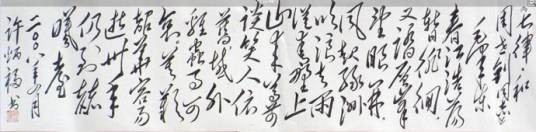 七律 和
周世钊同志
毛泽东
春江浩荡
暂徘徊
又踏层峰
望眼开
风起绿洲
吹浪去雨
从青野上
山来尊前
谈笑人依
旧域外
鸡虫事可
哀莫叹
韶华容易
逝卅年
仍到赫
曦台
二〇〇八年月
许炳福书